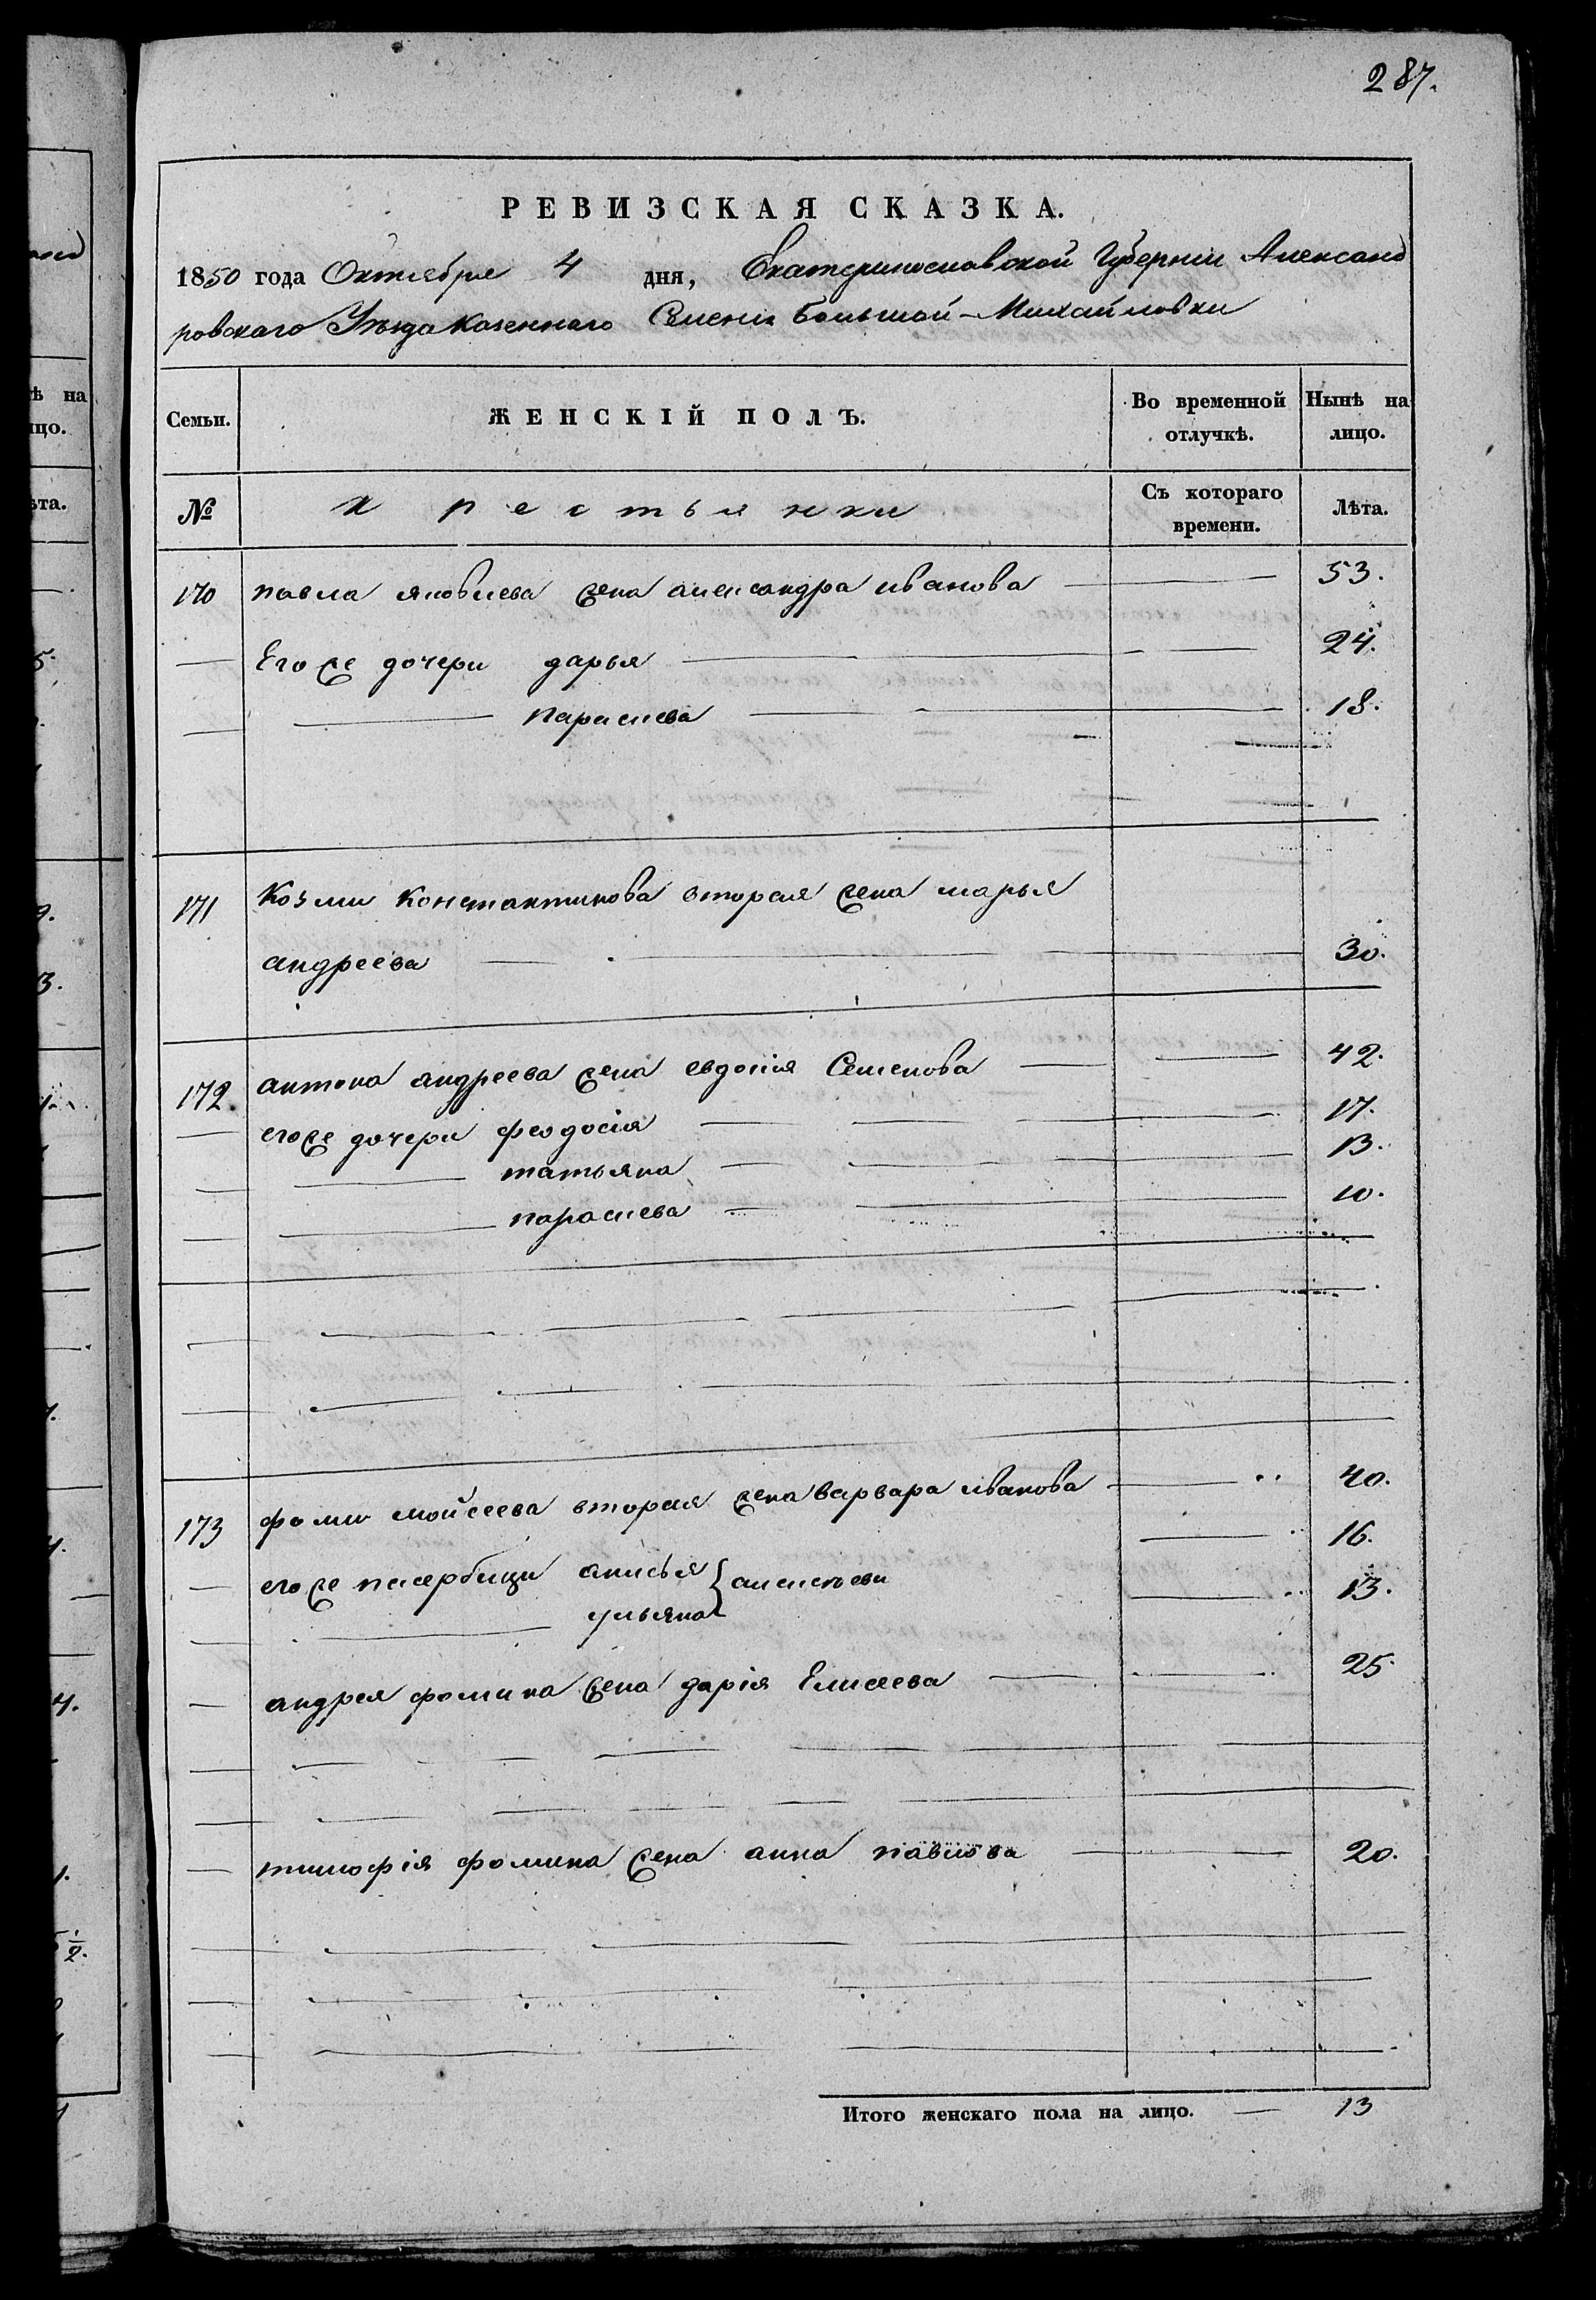 287.
РЕВИЗСКАЯ СКАЗКА.
1850 года Октября 4 дня, Екатеринославской Губерніи Александ
ровскаго Уѣзда Казеннаго Селенія Большой-Михайловки
Семьи. ЖЕНСКІЙ ПОЛЪ. Во временной отлучкѣ. Нынѣ на лицо.
№ крестьянки Съ котораго времени. Лѣта.
170 павла яковлева жена александра иванова 53.
Его же дочери дарья 24.
параскева 18.
171 Козми Константинова вторая жена марья
андреева 30.
172 антона андреева жена евдокія Семенова 42.
его же дочери феодосія 17.
татьяна 13.
параскева 10.
173 фоми мойсеева вторая жена варвара иванова 40.
его же пасербици анисья 16.
ульяна алексѣеви 13.
андрея фомина жена дарія Елисеева 25.
тимофія фомина жена анна павлова 20.
Итого женскаго пола на лицо. 13
ѣ на
цо.
ѣта.
5.
9.
3.
4.